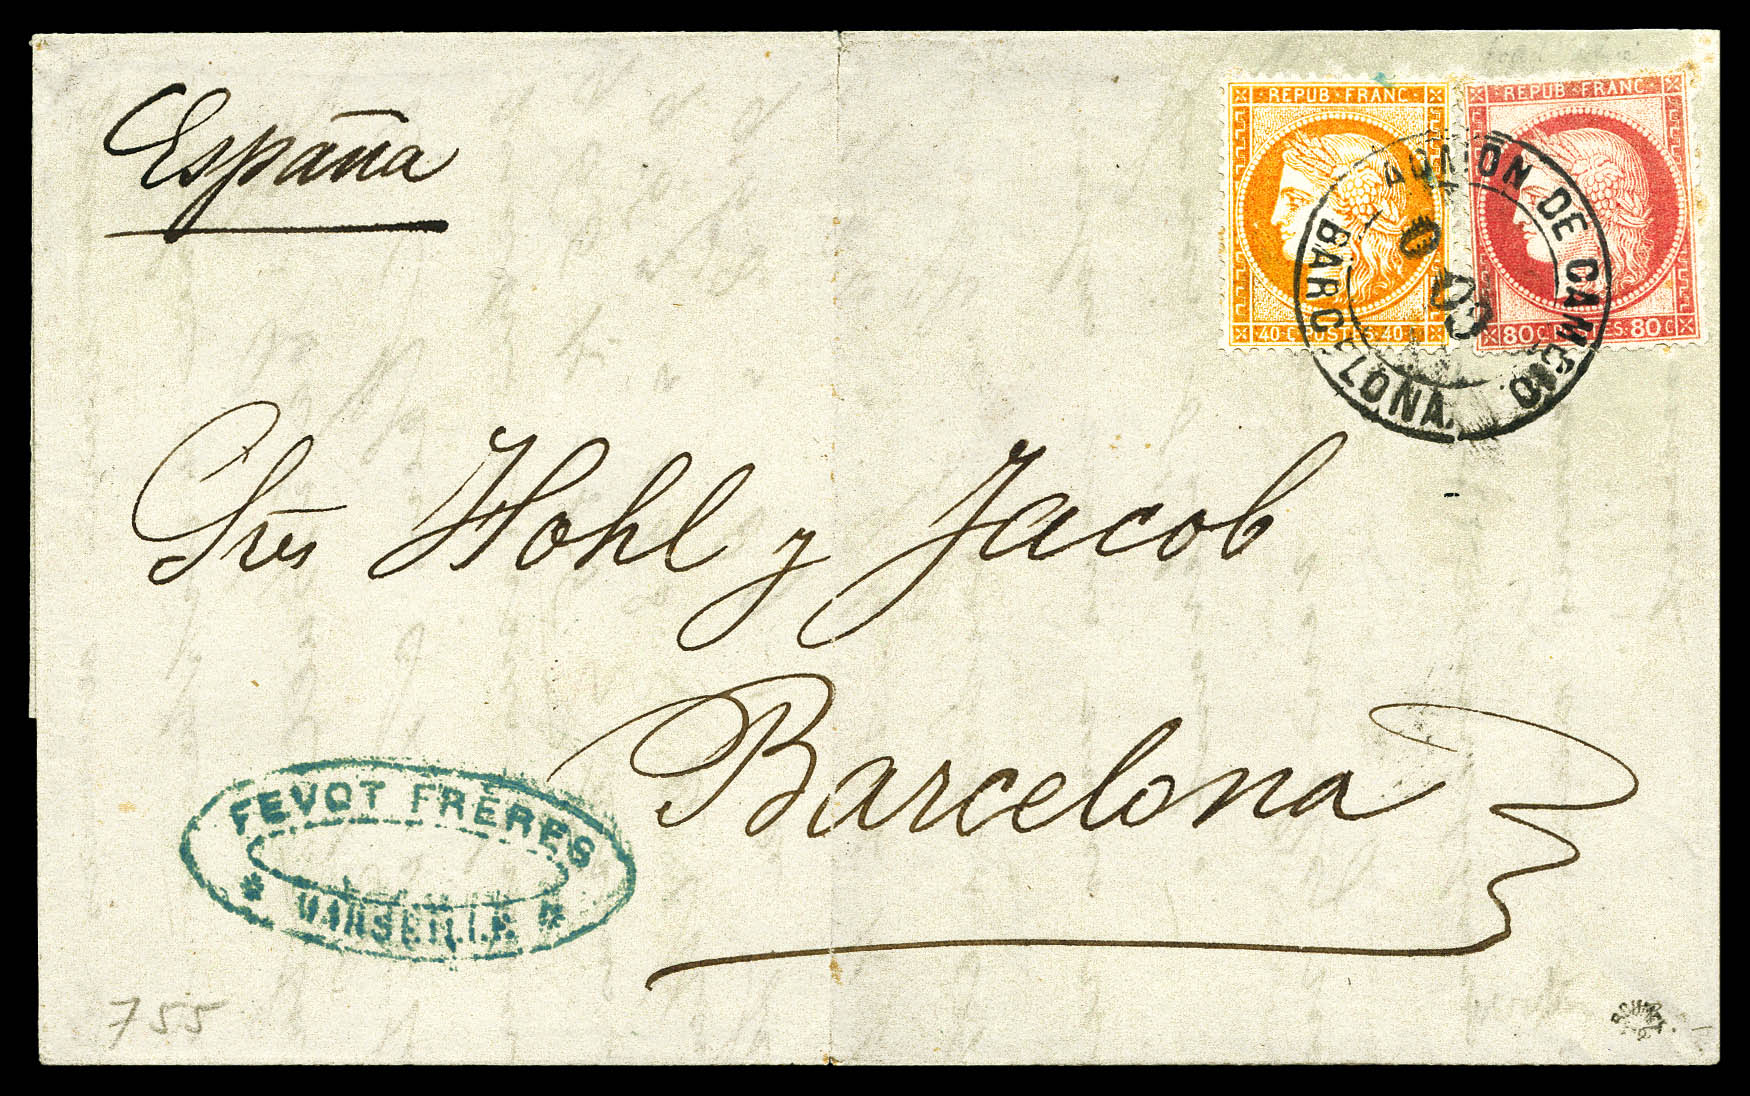 España
REPUB · FRANC ·
40 C POSTES 40 C
REPUB · FRANC ·
80 C POSTES 80 C
ADMON DE CAMBIO
BARCELONA.
Sres Hohl y Jacob
Barcelona
FEVOT FRÈRES
* MARSEILLE *
755